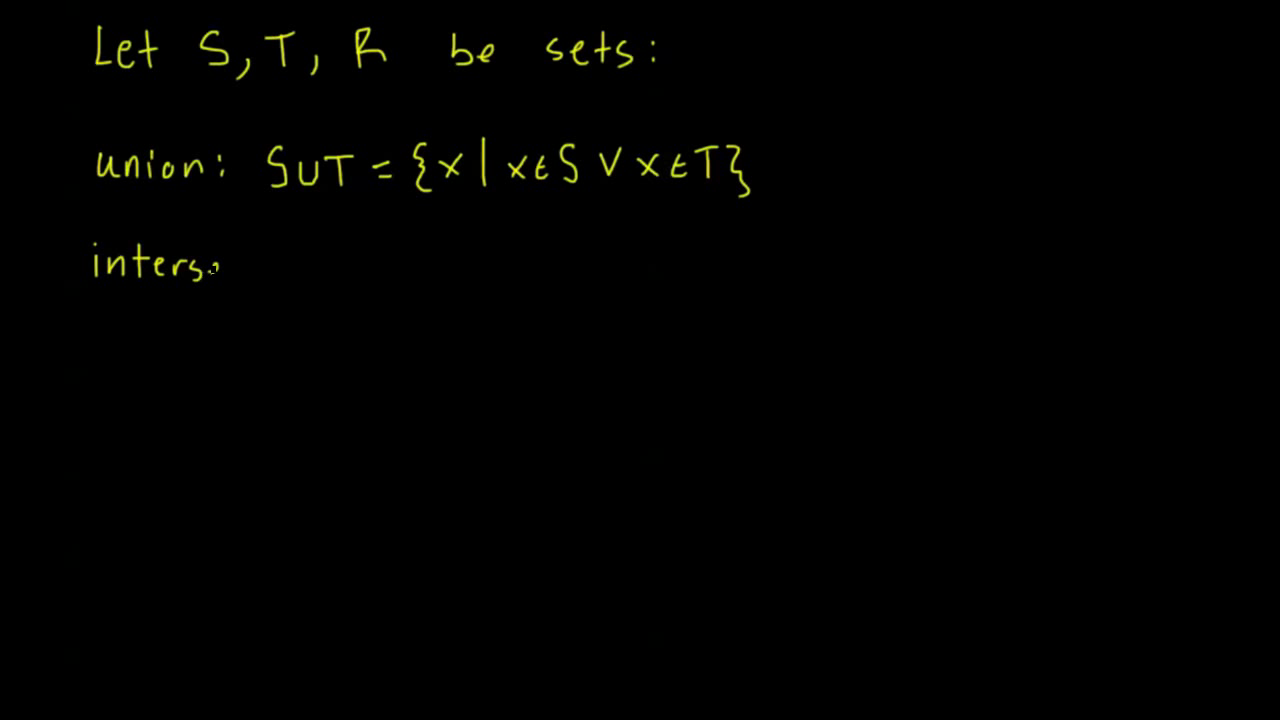 Let S, T, R be sets:
union: S∪T = {x | x∈S ∨ x∈T}
inters